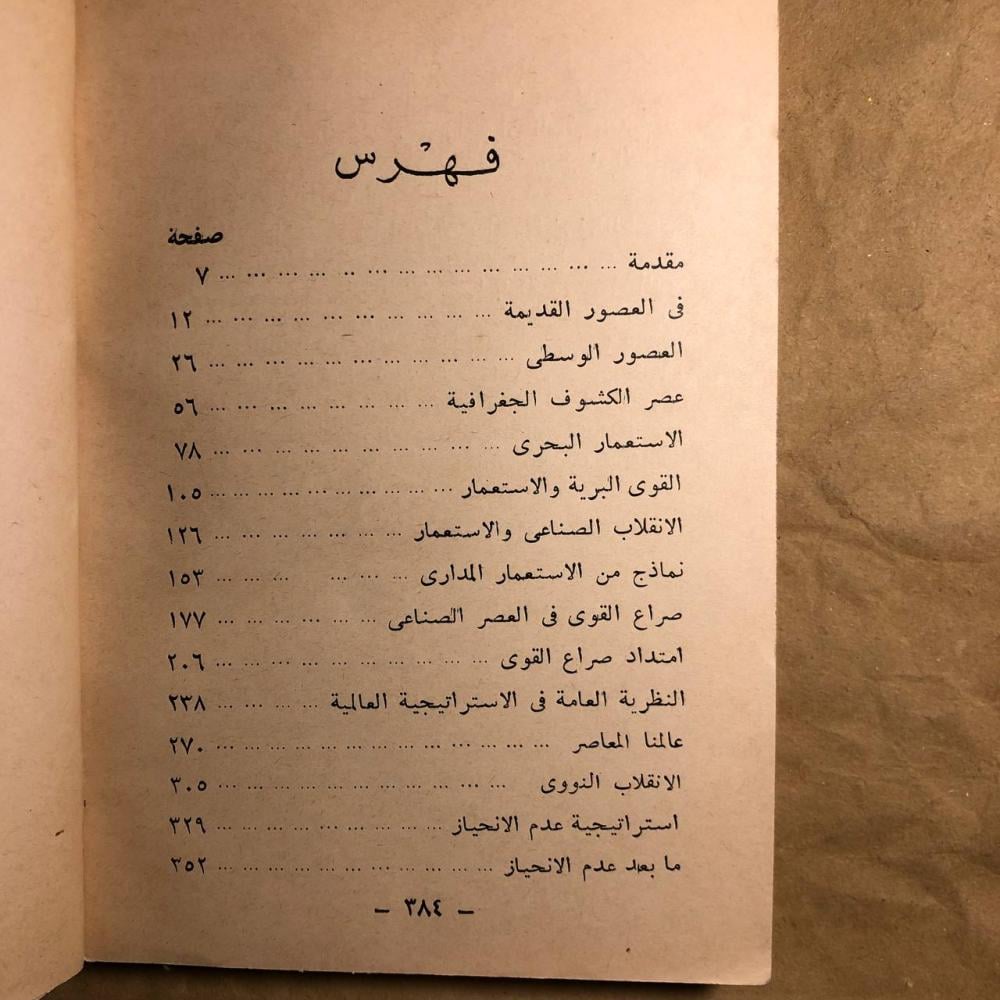 فهرس
صفحة
مقدمة ... ... ... ... ... ... ... ... .. ... ... ... ... ... ٧
فى العصور القديمة ... ... ... ... ... ... ... ... ... ... ١٢
العصور الوسطى ... ... ... ... ... ... ... ... ... ... ... ٢٦
عصر الكشوف الجغرافية ... ... ... ... ... ... ... ... ٥٦
الاستعمار البحرى ... ... ... ... ... ... ... ... ... ... ٧٨
القوى البرية والاستعمار ... ... ... ... ... ... ... ... ... ١٠٥
الانقلاب الصناعى والاستعمار ... ... ... ... ... ... ... ١٢٦
نماذج من الاستعمار المدارى ... ... ... ... ... ... ١٥٣
صراع القوى فى العصر الصناعى ... ... ... ... ... ... ١٧٧
امتداد صراع القوى ... ... ... ... ... ... ... ... ... ... ٢٠٦
النظرية العامة فى الاستراتيجية العالمية ... ... ... ... ٢٣٨
عالمنا المعاصر ... ... ... ... ... ... ... ... ... ... ... ... ٢٧٠
الانقلاب النووى ... ... ... ... ... ... ... ... ... ... ... ٣٠٥
استراتيجية عدم الانحياز ... ... ... ... ... ... ... ... ... ٣٢٩
ما بعد عدم الانحياز ... ... ... ... ... ... ... ... ... ... ... ٣٥٢
– ٣٨٤ –